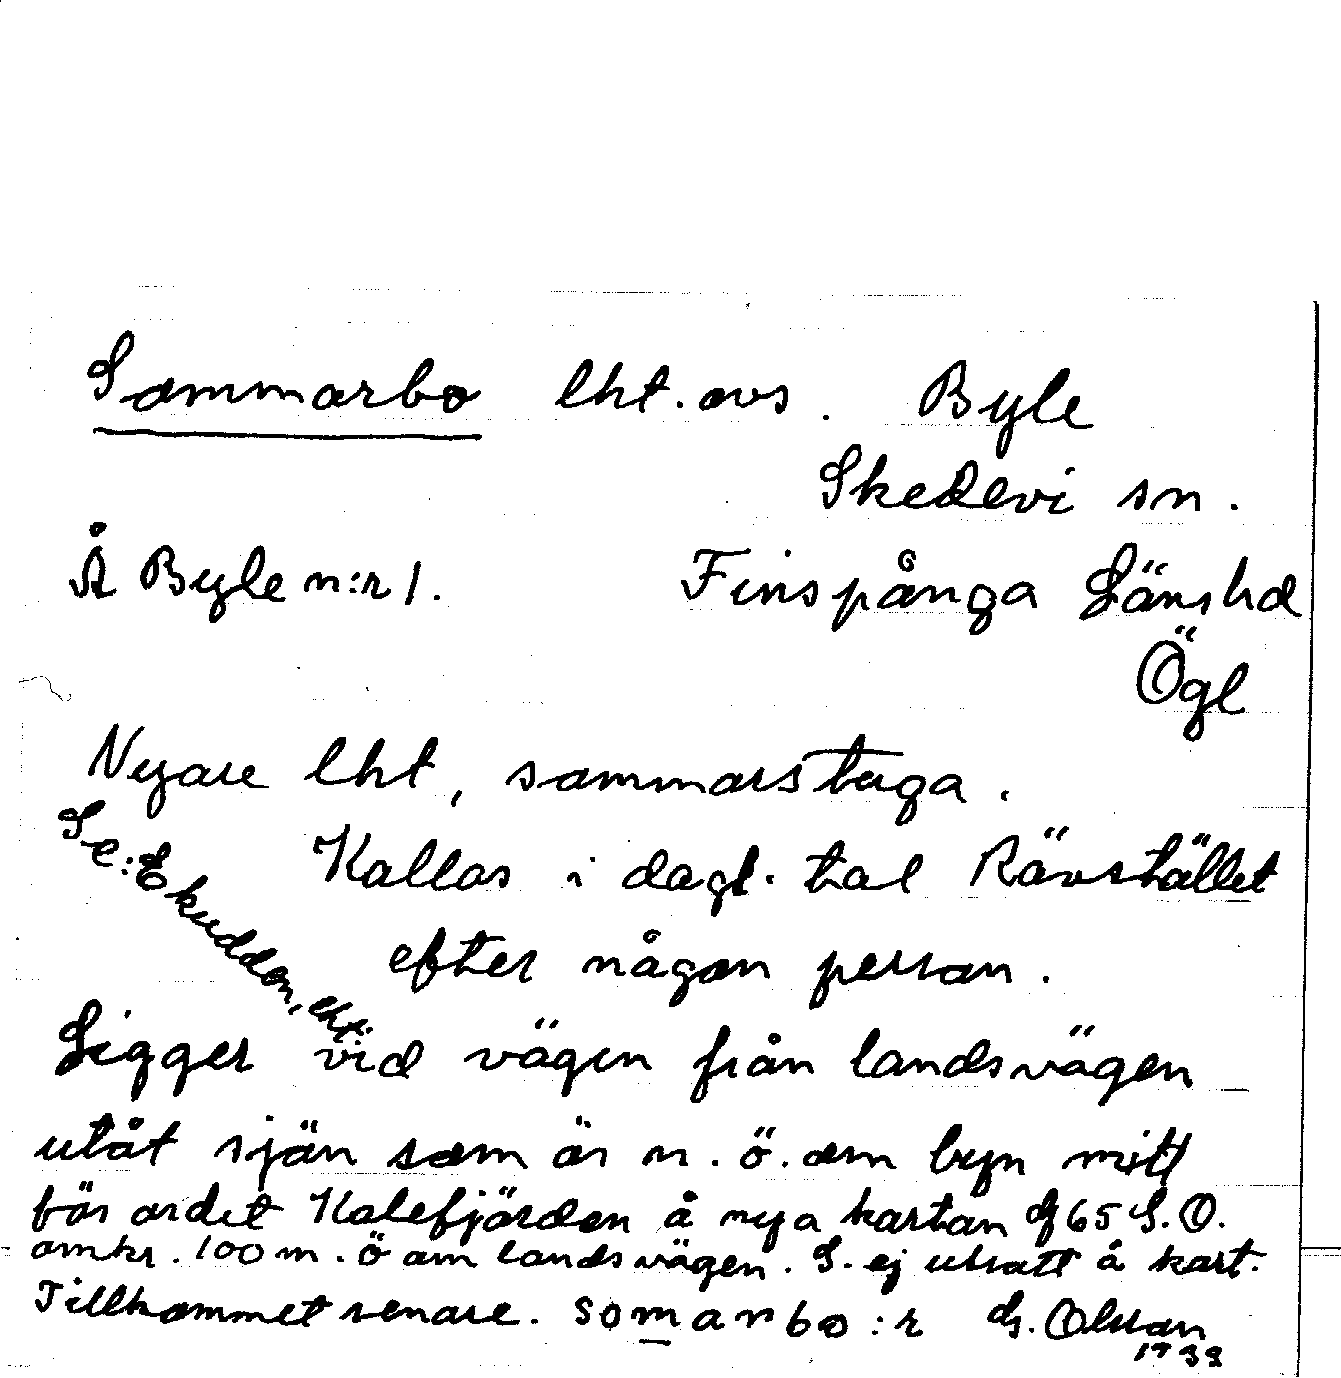 Sommarbo lht. avs. Byle
Skedevi sn.
Å Byle n:r 1. Finspånga Länshd
Ögl
Nyare lht, sommarstuga.
Se: Ekudden, lht.
Kallas i dagl. tal Rävstället
efter någon person.
Ligger vid vägen från landsvägen
utåt sjön som är n.ö. om byn mitt
för ordet Kalefjärden å nya kartan df 65 S.O.
omkr. 100 m. ö om landsvägen. S. ej utsatt å kart.
Tillkommet senare. somarbo:r G. Olsson